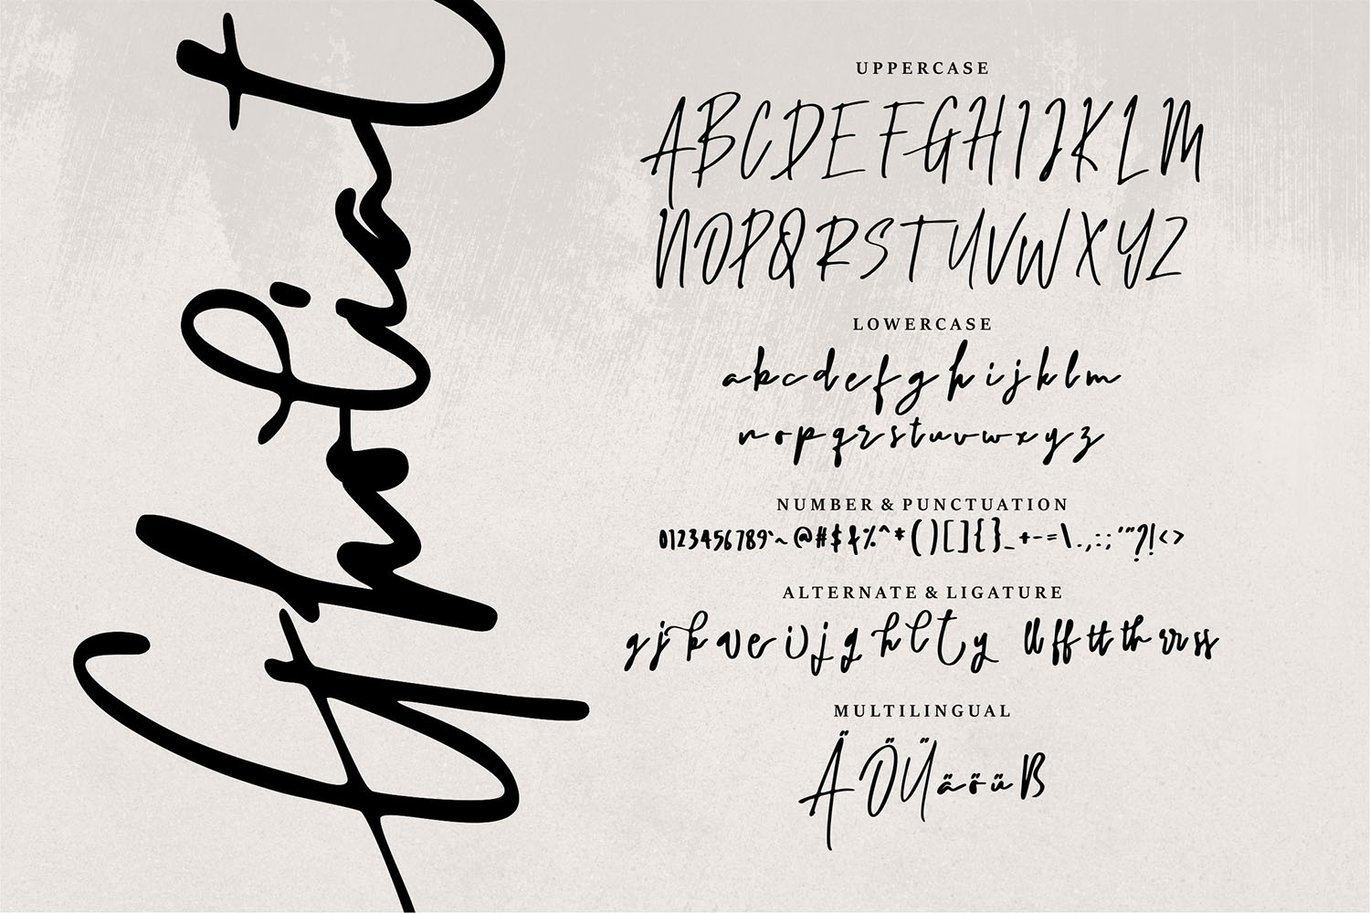 Gholiat
UPPERCASE
ABCDEFGHIJKLM
NOPQRSTUVWXYZ
LOWERCASE
abcdefghijklm
nopqrstuvwxyz
NUMBER & PUNCTUATION
0123456789`~@#$&%^*()[]{}_+-=\.,:;'"?!<>
ALTERNATE & LIGATURE
MULTILINGUAL
ÄÖÜäöüß